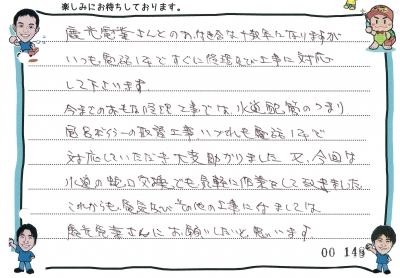 楽しみにお待ちしております。
さんとのお付き合いは十数年になりますが
いつも電話1本ですぐに修理及び工事に対応
して下さいます。
今までのおもな修理工事では、水道配管のつまり
風呂ボイラーの取替工事いづれも電話1本で
対応していただき大変助かりました 又、今回は
水道の蛇口交換でも気軽に作業をして頂きました。
これからも、電気及びその他の工事に付きましては
さんにお願いしたいと思います。
00 148